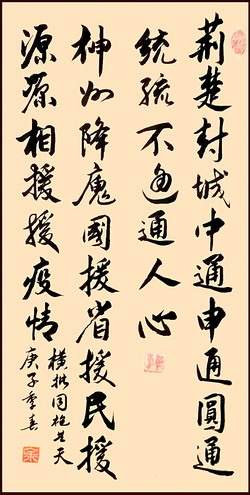 荆楚封城中通申通圓通
統統不通通人心
神州降魔國援省援民援
源源相援援疫情
橫批同袍共天
庚子季春